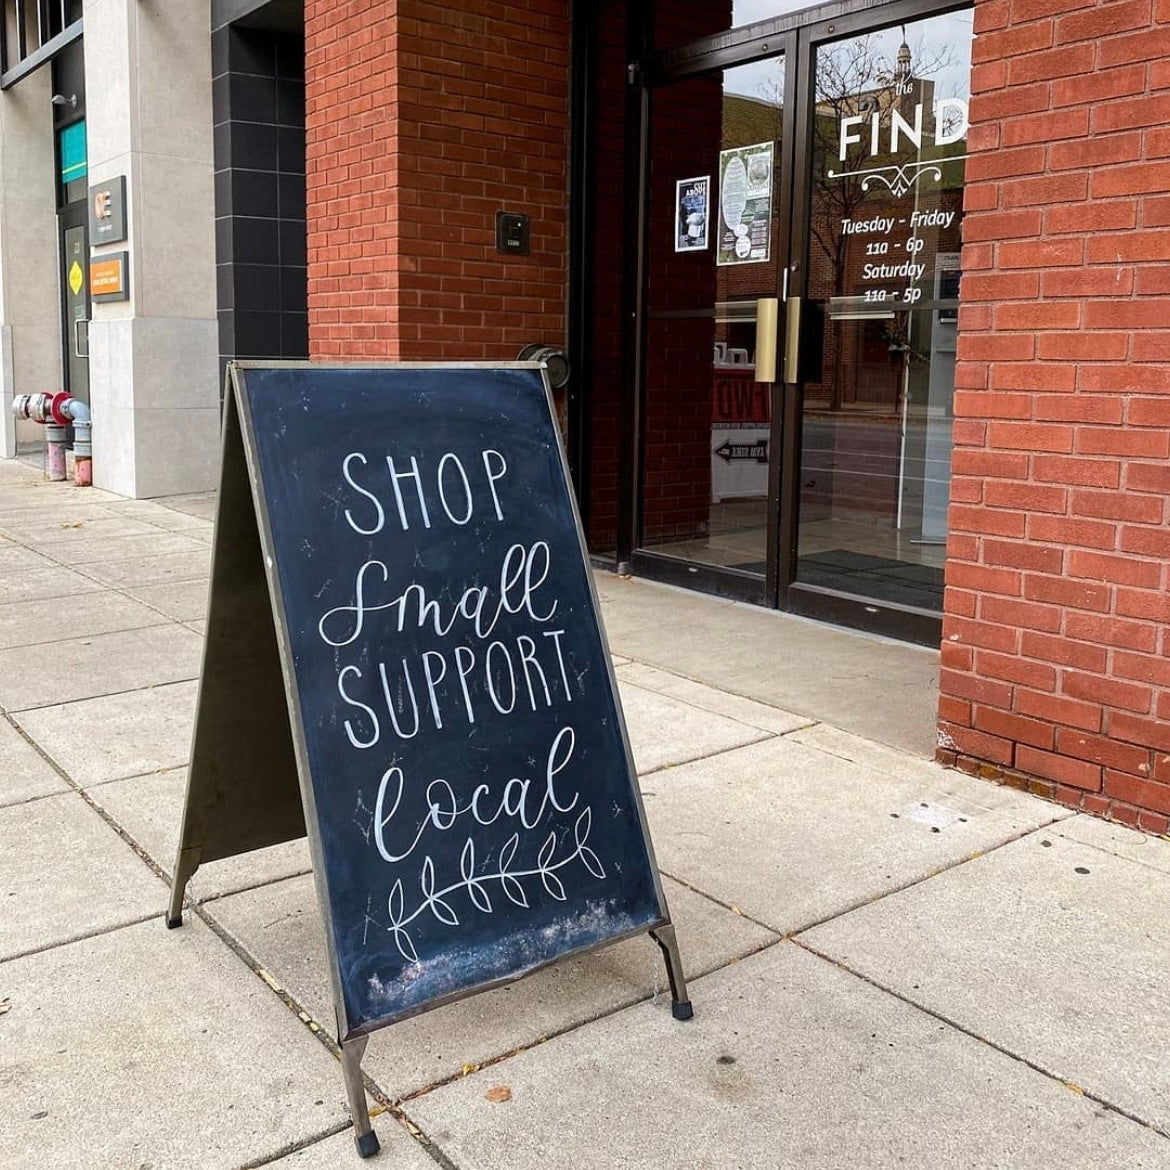 SHOP
small
SUPPORT
local
the
FIND
Tuesday - Friday
11a - 6p
Saturday
11a - 5p